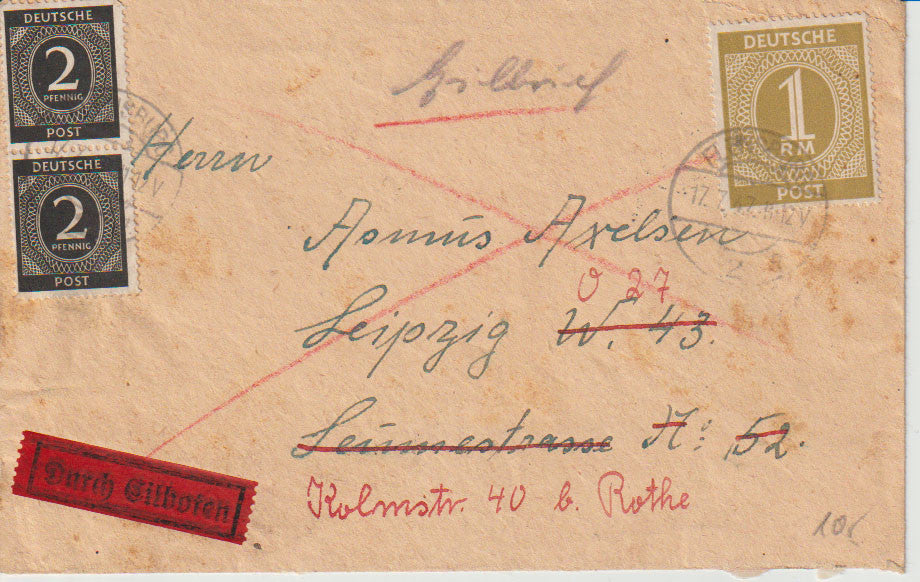 DEUTSCHE
2
PFENNIG
POST
DEUTSCHE
2
PFENNIG
POST
DEUTSCHE
1
RM
POST
Herrn
Asmus Axelsen
O 27
Leipzig W. 43.
Seumestrasse N: 52.
Kolmstr. 40 b. Rothe
Durch Eilboten